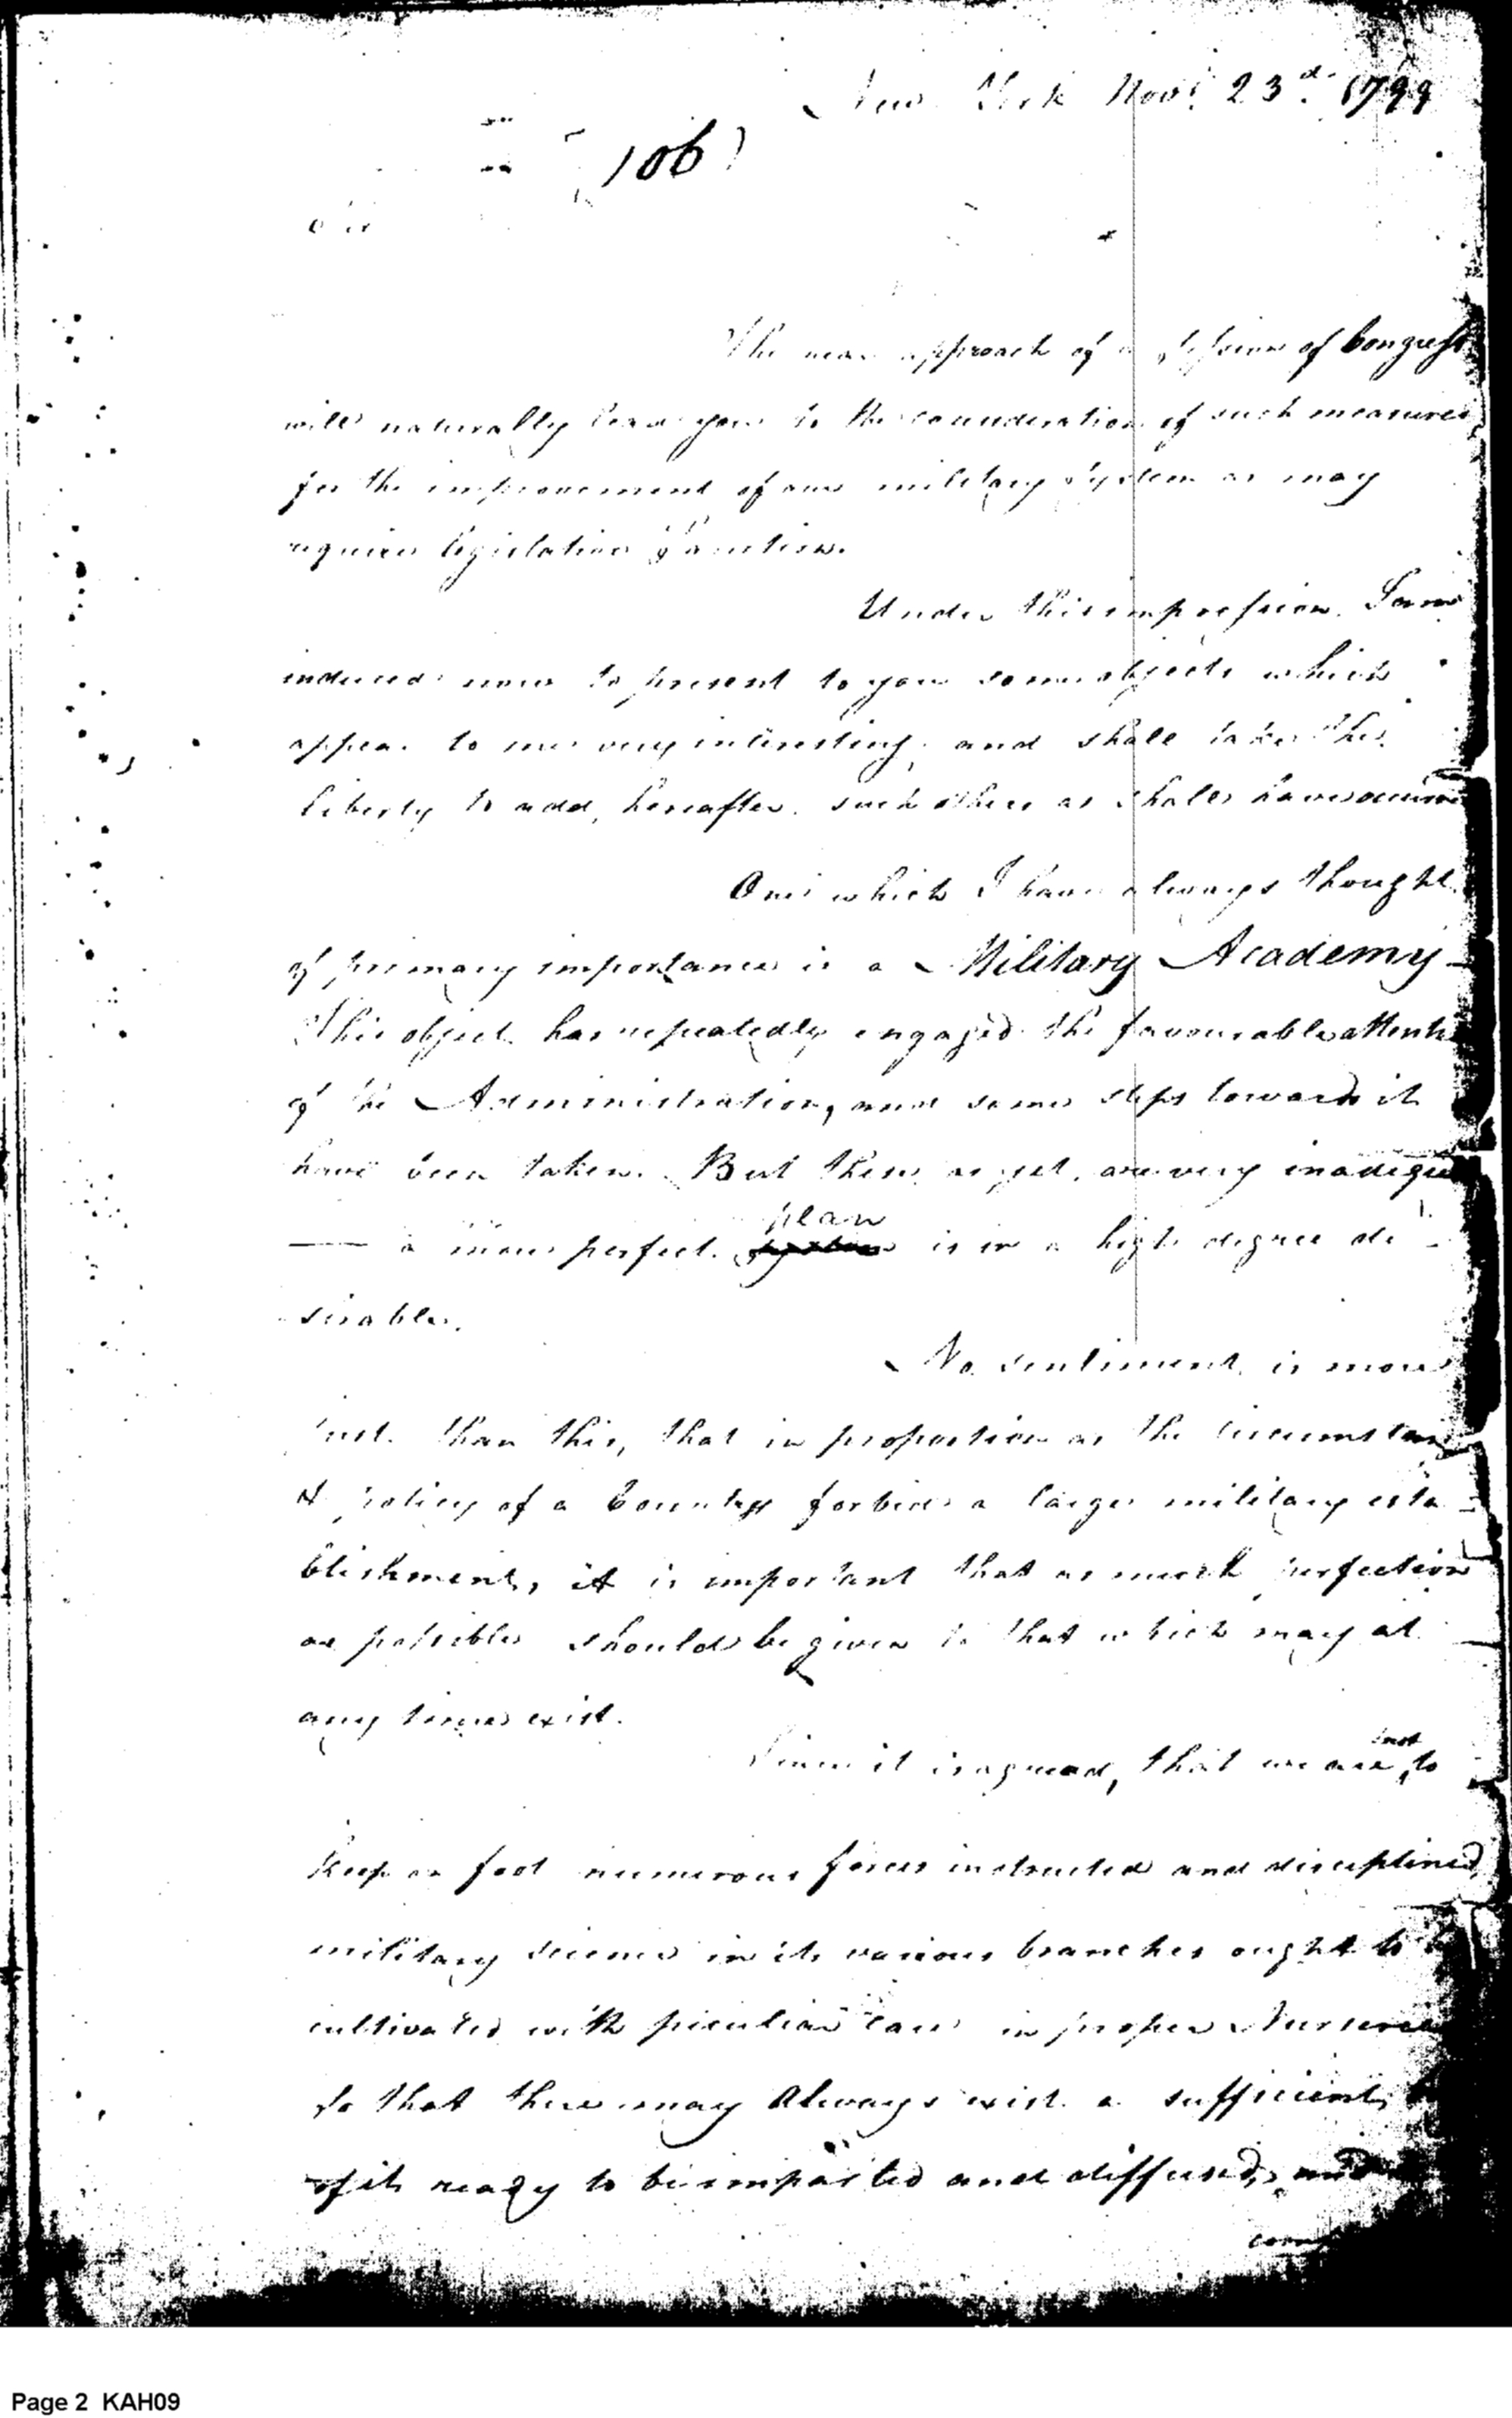 New York Nov.r 23.d 1799
106
Sir
The near approach of a Session of Congress
will naturally lead you to the consideration of such measures
for the improvement of our military System as may
require legislative Sanction.
Under this impression, I am
induced now to present to you some objects which
appear to me very interesting; and shall take the
liberty to add, hereafter, such others as shall have occurre
One which I have always thought
of primary importance is a Military Academy
This object has repeatedly engaged the favourable attenti
of the Administration, and some steps toward it
have been taken. But these, as yet, are very inadequ
— a more perfect plan is in a high degree de
sirable.
No sentiment is more
just than this, that in proportion as the circumstan
& policy of a Country forbid a large military esta
blishment, it is important that as much perfection
as possible should be given to that which may at
any time exist.
Since it is agreed, that we are not to
keep on foot numerous forces instructed and disciplined,
military science in its various branches ought to b
cultivated with peculiar care in proper Nurserie
So that there may Always exist a sufficient
of it ready to be imparted and diffused, and